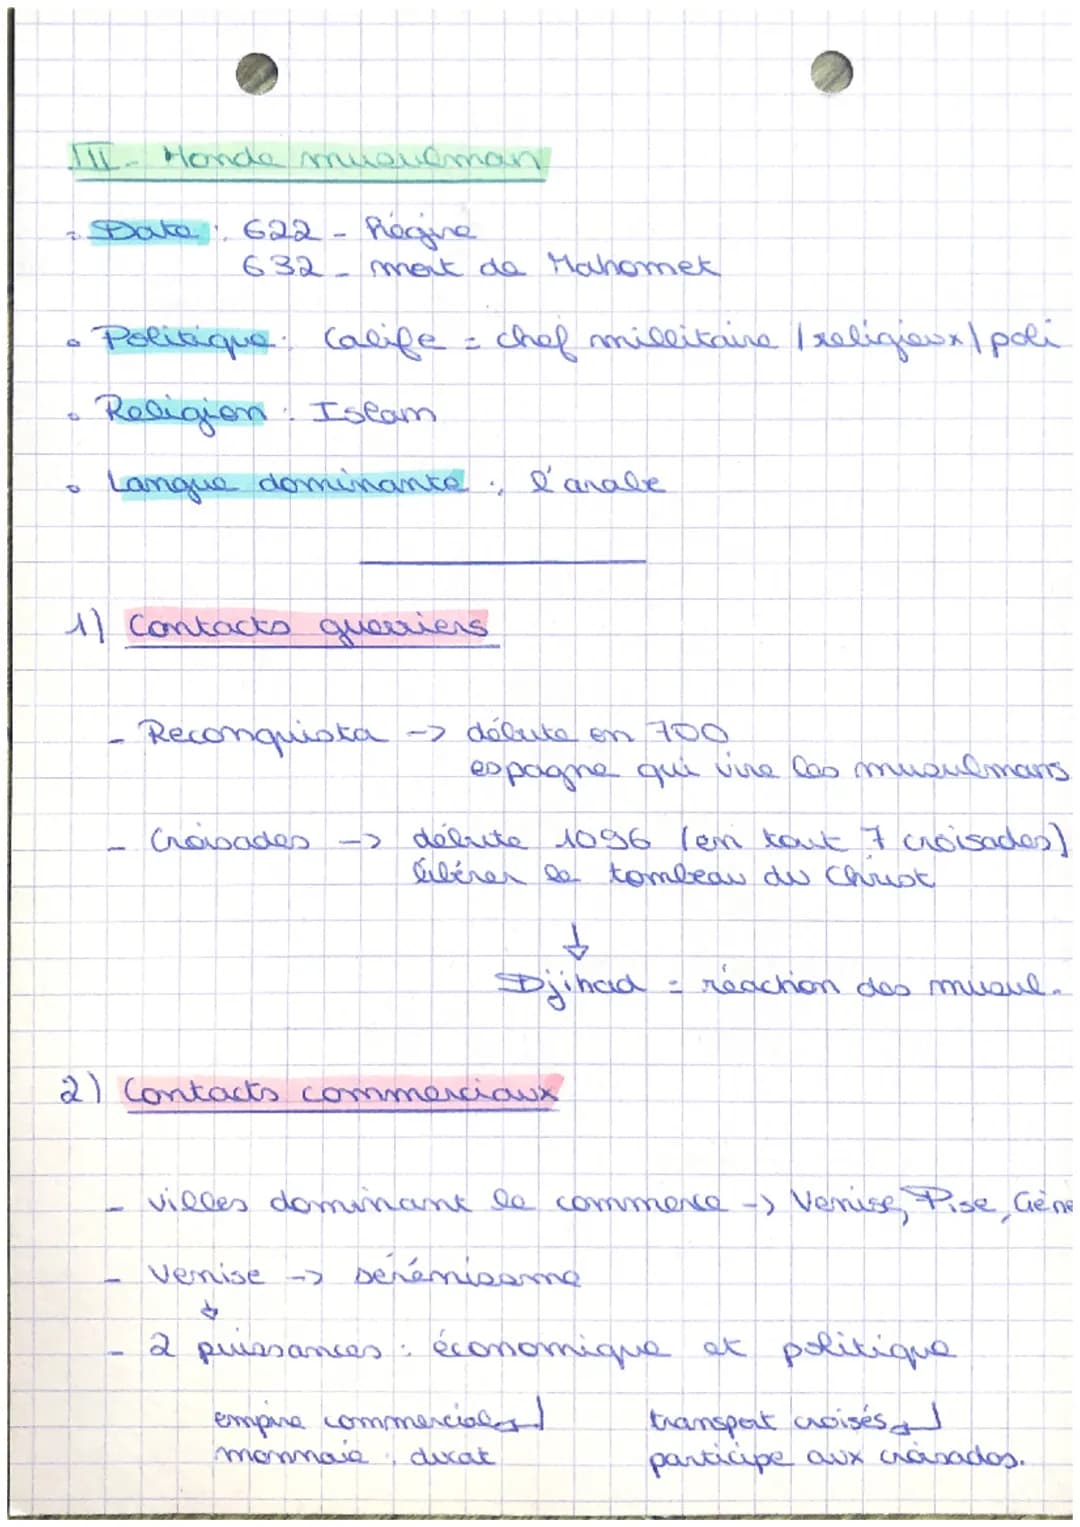 III - Monde musulman
- Date : 622 - Régire
632 - mort de Mahomet
• Politique : Calife = chef millitaire / religieux / poli
• Religion : Islam
• Langue dominante : l'arabe
1) Contacts guerriers
- Reconquista -> débute en 700
espagne qui vire les musulmans
- Croisades -> débute 1096 (en tout 7 croisades)
libérer le tombeau du Christ
↓
Djihad = réaction des musul.
2) Contacts commerciaux
- villes dominant le commerce -> Venise, Pise, Gêne
- Venise -> sérémissme
↓
- 2 puissances : économique et politique
empire commerciale transport croisés
monnaie : ducat participe aux croisades.